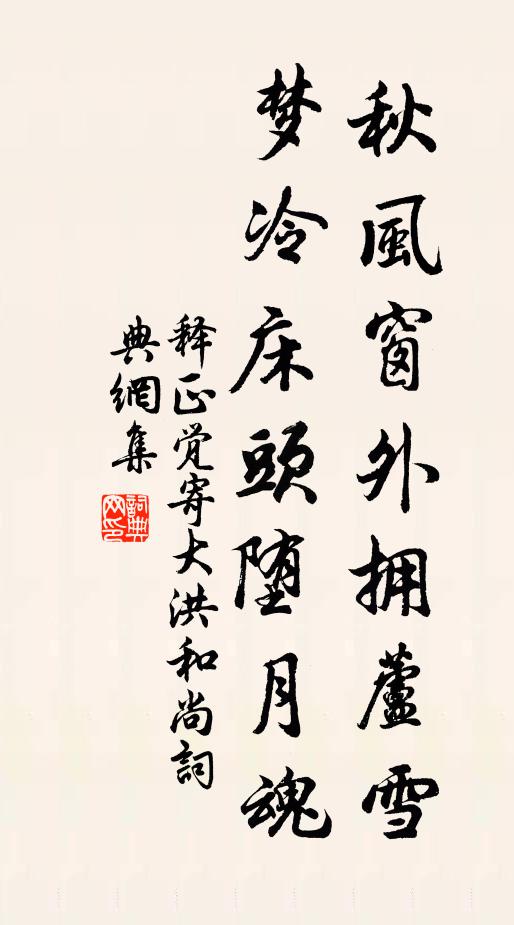 秋風窗外拥蘆雪
梦冷床頭堕月魂
释正觉寄大洪和尚詞
典網集
詞典网印